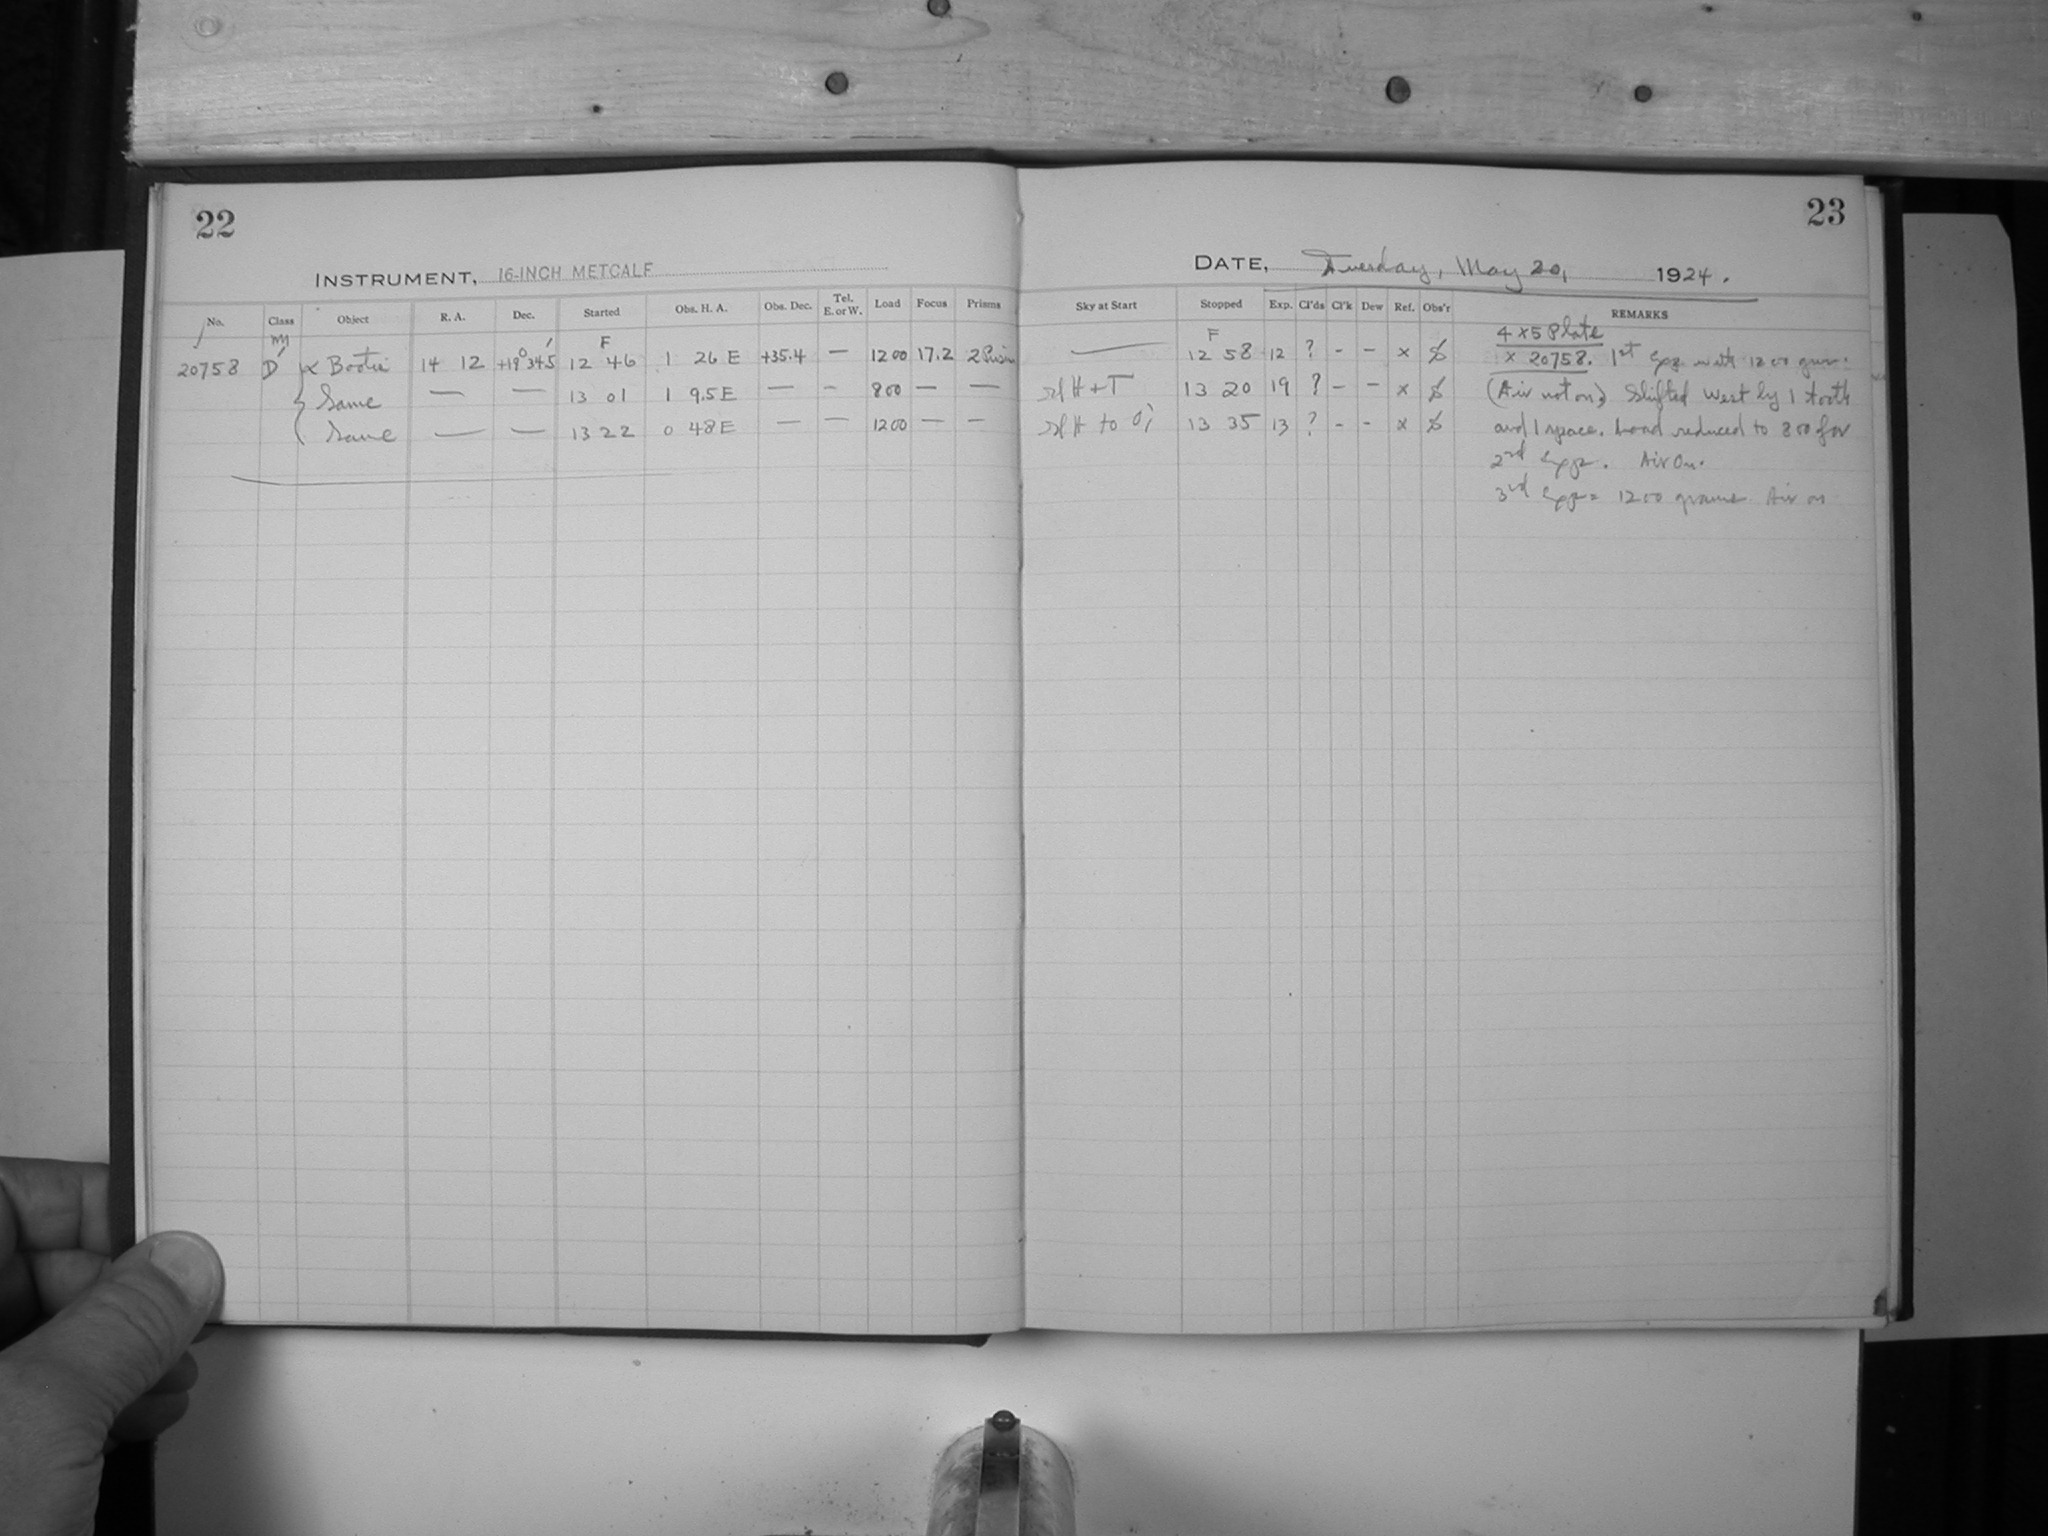 22
INSTRUMENT, 16-INCH METCALF
No. Class Object R. A. Dec. Started Obs. H. A. Obs. Dec. Tel. E. or W. Load Focus Prisms
20758 D α Bootis 14 12 +19° 34'.5 12 46 1 26 E +35.4 — 1200 17.2 2 Prism
Same — — 13 01 1 9.5 E — – 800 — —
Same — — 13 22 0 48 E — — 1200 — —
23
DATE, Tuesday, May 20, 1924.
Sky at Start Stopped Exp. Cl'ds Cl'k Dew Ref. Obs'r REMARKS
F
— 12 58 12 ? - - x
H + T 13 20 19 ? - - x
H to 13 35 13 ? - - x
4 x 5 Plate
x 20758. 1st Exp. with 1200 gms.
(Air not on) Shifted West by 1 tooth
and 1 space. Load reduced to 800 for
2nd Exp. Air On.
3rd Exp = 1200 grams Air on